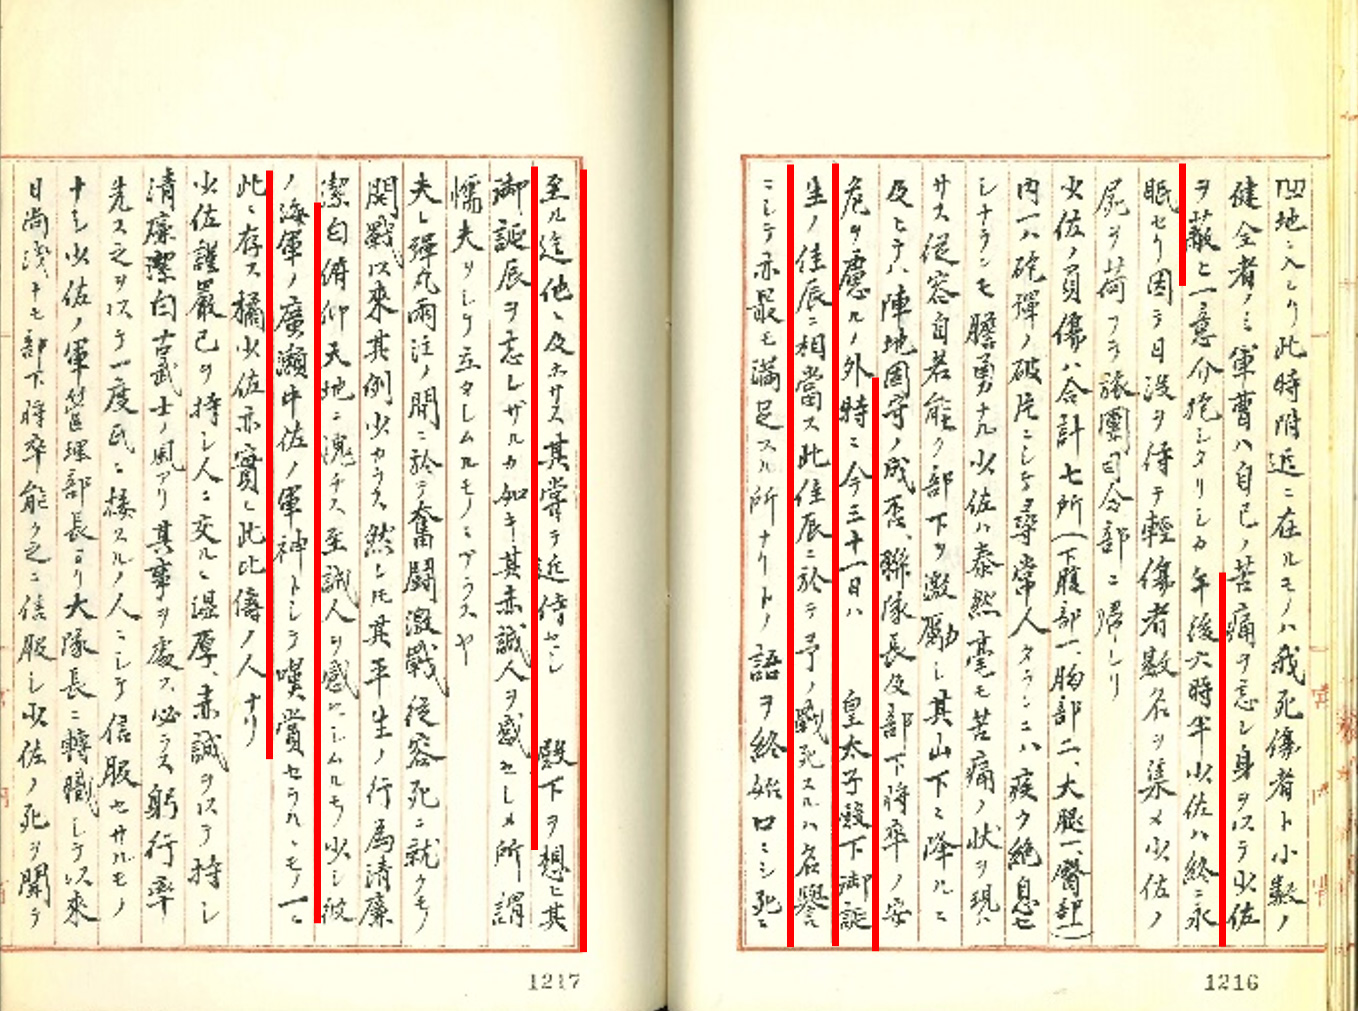 凹地ニ入レリ此時附近ニ在ルモノハ我死傷者ト小数ノ
健全者ノミ軍曹ハ自己ノ苦痛ヲ忘レ身ヲ以テ少佐
ヲ蔽ヒ一意介抱シタリシカ午後六時半少佐ハ終ニ永
眠セリ因テ日没ヲ待テ軽傷者数名ヲ集メ少佐ノ
屍ヲ荷フテ旅團司令部ニ帰レリ
少佐ノ負傷ハ合計七所(下腹部一、胸部二、大腿一、臀部一)
内一ハ砲彈ノ破片ニシテ尋常人タランニハ疾ク絶息セ
シナランモ膽勇ナル少佐ハ泰然毫モ苦痛ノ状ヲ現ハ
サス従容自若能ク部下ヲ激勵シ其山下ニ降ルニ
及ヒテハ陣地固守ノ成否、聯隊長及部下将卒ノ安
危ヲ慮ルノ外時ニ今三十一日ハ 皇太子殿下御誕
生ノ佳辰ニ相當ス此佳辰ニ於テ予ノ戦死スルハ名譽
ニシテ亦最モ満足スル所ナリトノ語ヲ終始口ニシ死ニ
1216
至ル迄他ニ及ホサス其嘗テ近侍セシ 殿下ヲ想ヒ其
御誕辰ヲ忘レザルカ如キ其赤誠人ヲ感セシメ所謂
懦夫ヲシテ立タシムルモノニアラスヤ
夫レ彈丸雨注ノ間ニ於テ奮闘激戦従容死ニ就クモノ
開戦以来其例少カラス然レトモ其平生ノ行為清廉
潔白俯仰天地ニ愧チス至誠人ヲ感セシムルモノ少シ彼
ノ海軍ノ廣瀬中佐ノ軍神トシテ嘆賞セラルヽモノ一ニ
此ニ存ス橘少佐亦實ニ此比儔ノ人ナリ
少佐謹嚴己ヲ持シ人ニ交ルニ温厚、赤誠ヲ以テ持シ
清廉潔白古武士ノ風アリ其事ヲ處ス必ラス躬行率
先ス之ヲ以テ一度氏ニ接スルノ人ニシテ信服セサルモノ
ナシ少佐ノ軍管理部長ヨリ大隊長ニ轉職シテ以来
日尚浅キモ部下将卒能ク之ニ信服シ少佐ノ死ヲ聞テ
1217